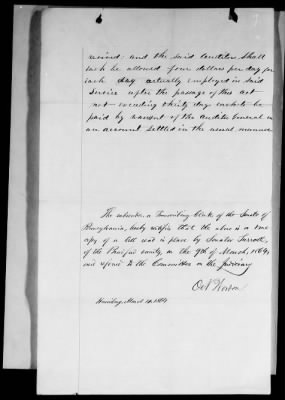 and the said Auditors shall
each be allowed four dollars per day for
each day actually employed in said
service after the passage of this act
not exceeding thirty days each to be
paid by warrant of the Auditor General on
an account settled in the usual manner
The subscriber, a Transcribing Clerk of the Senate of
Pennsylvania, hereby certifies that the above is a true
copy of a bill read in place by Senator
of the county, on the 9th of March, 1864,
and referred to the Committee on the Judiciary
March 14, 1864